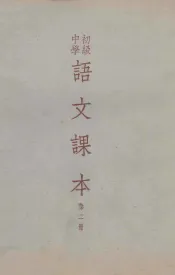 初級中學
語文課本
第二冊